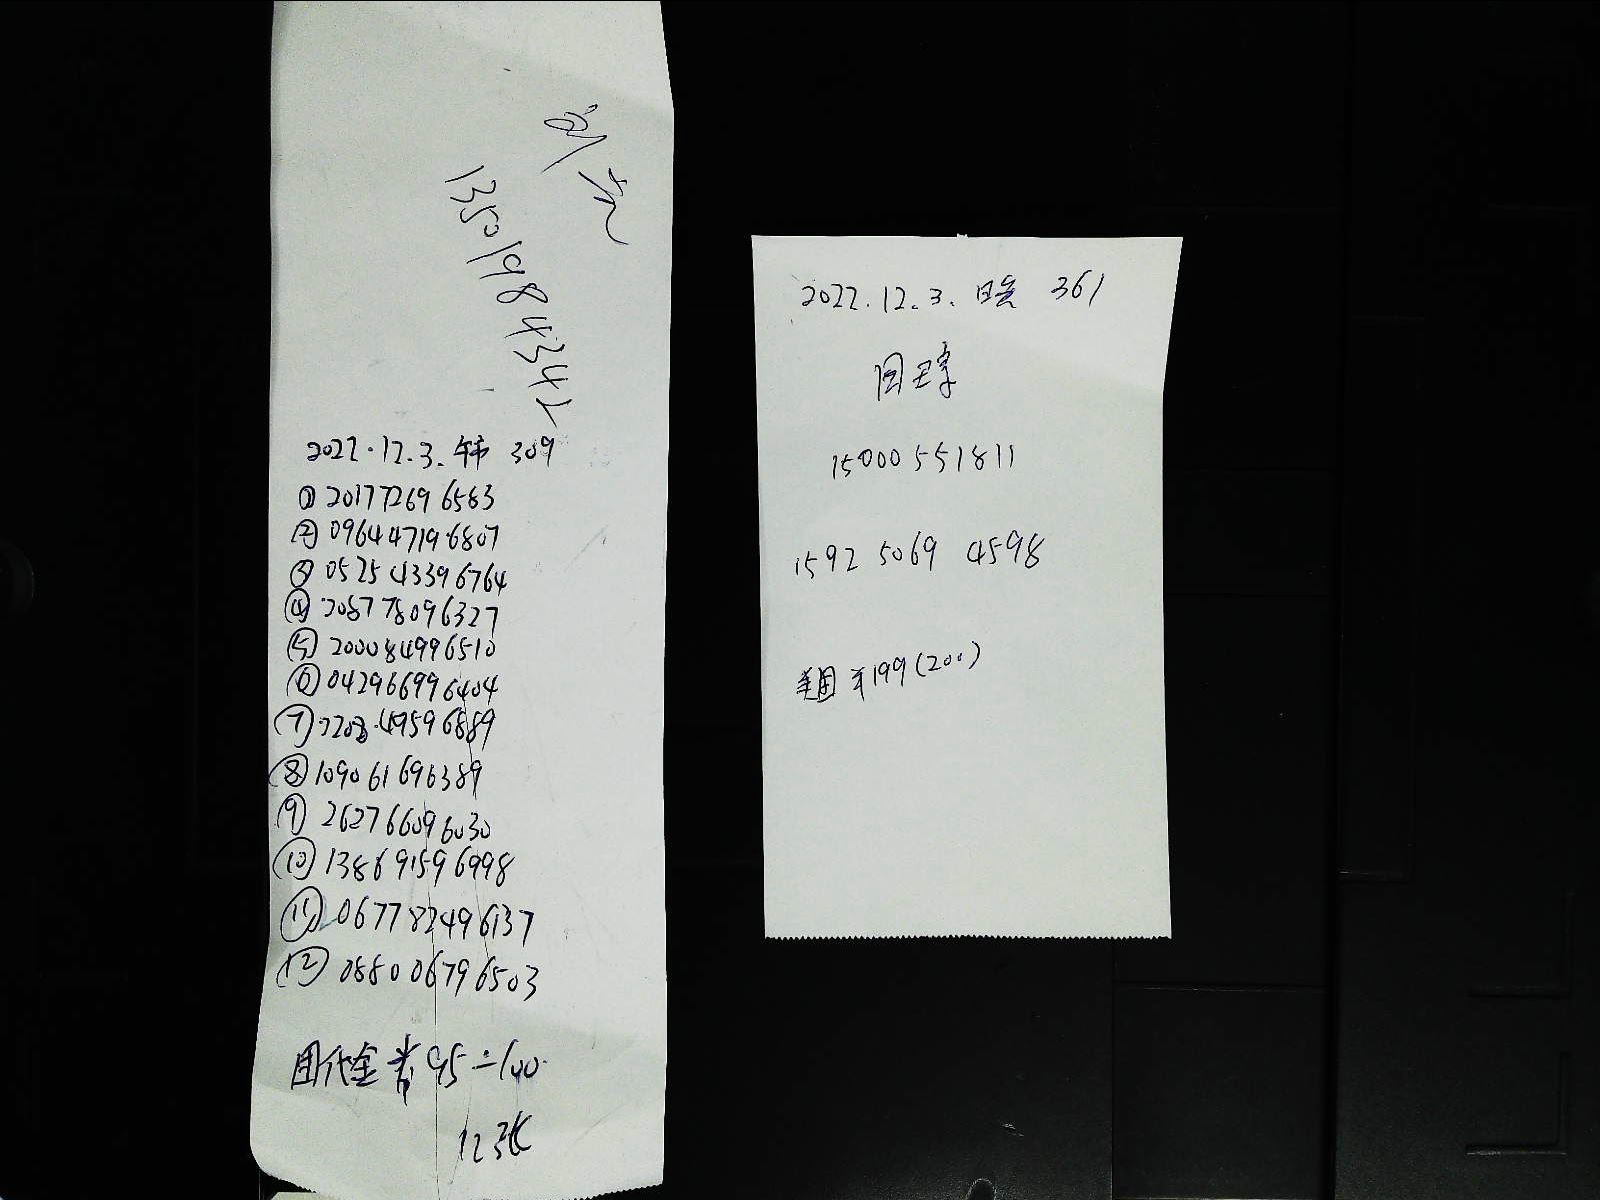 13501984341
2022.12.3. 午市 309
① 201772696583
② 096447196807
③ 052543396764
④ 208778096327
⑤ 200084996510
⑥ 042966996404
⑦
⑧ 109061696389
⑨ 262766096030
⑩ 138691596998
⑪ 067782496137
⑫ 088006796503
团代金券 95=100
12张
2022.12.3. 晚 361
15000551811
1592 5069 4598
美团 ¥199(200)